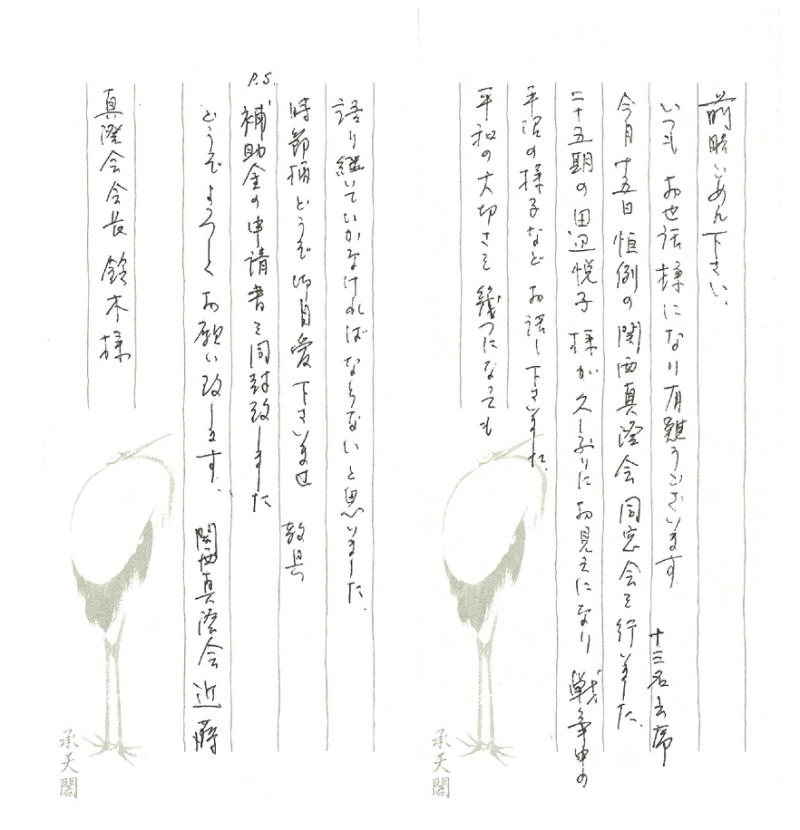 前略ごめん下さい、
いつもお世話様になり有難うございます 十三名出席
今月十五日恒例の関西真澄会同窓会を行いました、
二十五期の田辺悦子様が久しぶりにお見えになり 戦争中の
平沼の様子などお話し下さいました、
平和の大切さを幾つになっても
語り継いでいかなければならないと思いました、
時節柄どうぞ御自愛下さいませ 敬具
P.S. 補助金の申請書を同封致しました
どうぞよろしくお願い致します、 関西真澄会 近
真澄会会長 鈴木様
承天閣
承天閣